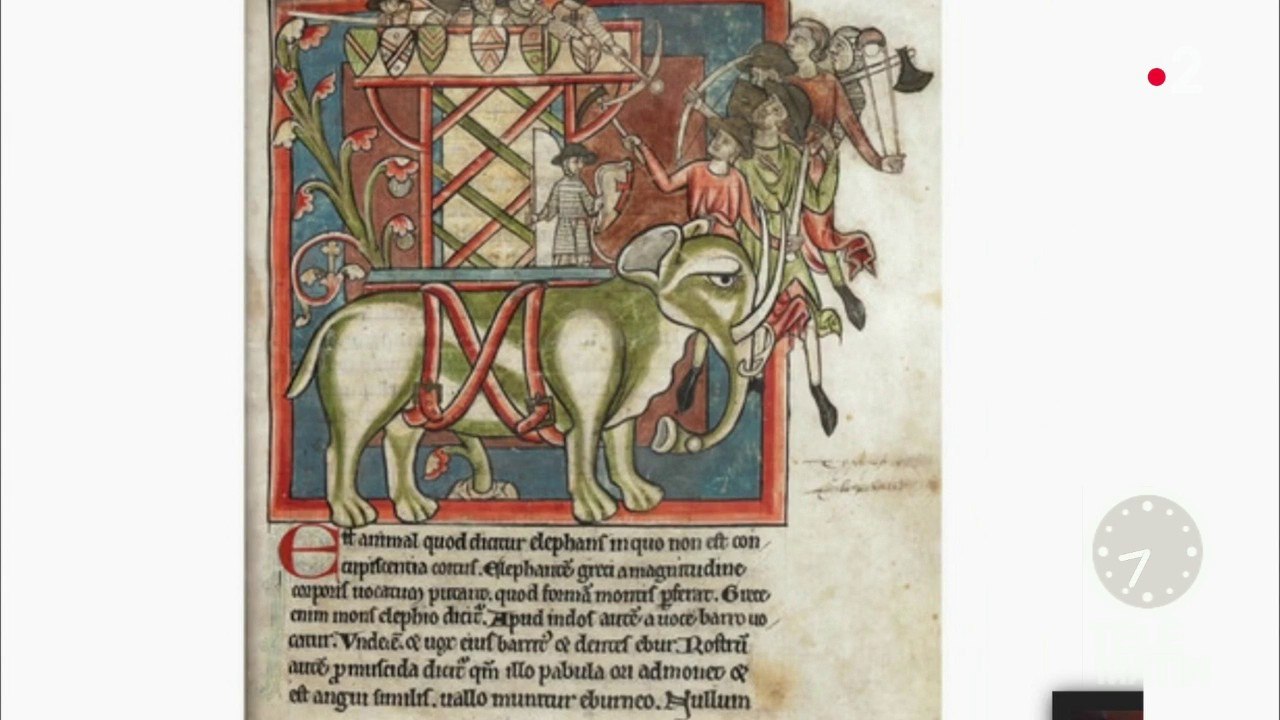 2
Est animal quod dicitur elephans in quo non est con
cupiscentia coitus. Elephantē greci a magnitudine
corporis uocatum putant. quod formā montis p̄ferat. Grece
enim mons elephio dicit᷑. Apud indos autē a uoce barro uo
catur. Vnde ē. & uox eius barrit᷒ & dentes ebur. Rostrū
autē p̄muscida dicit᷑ qm̄ illo pabula ori admouet &
est angui similis. uallo munitur eburneo. Nullum